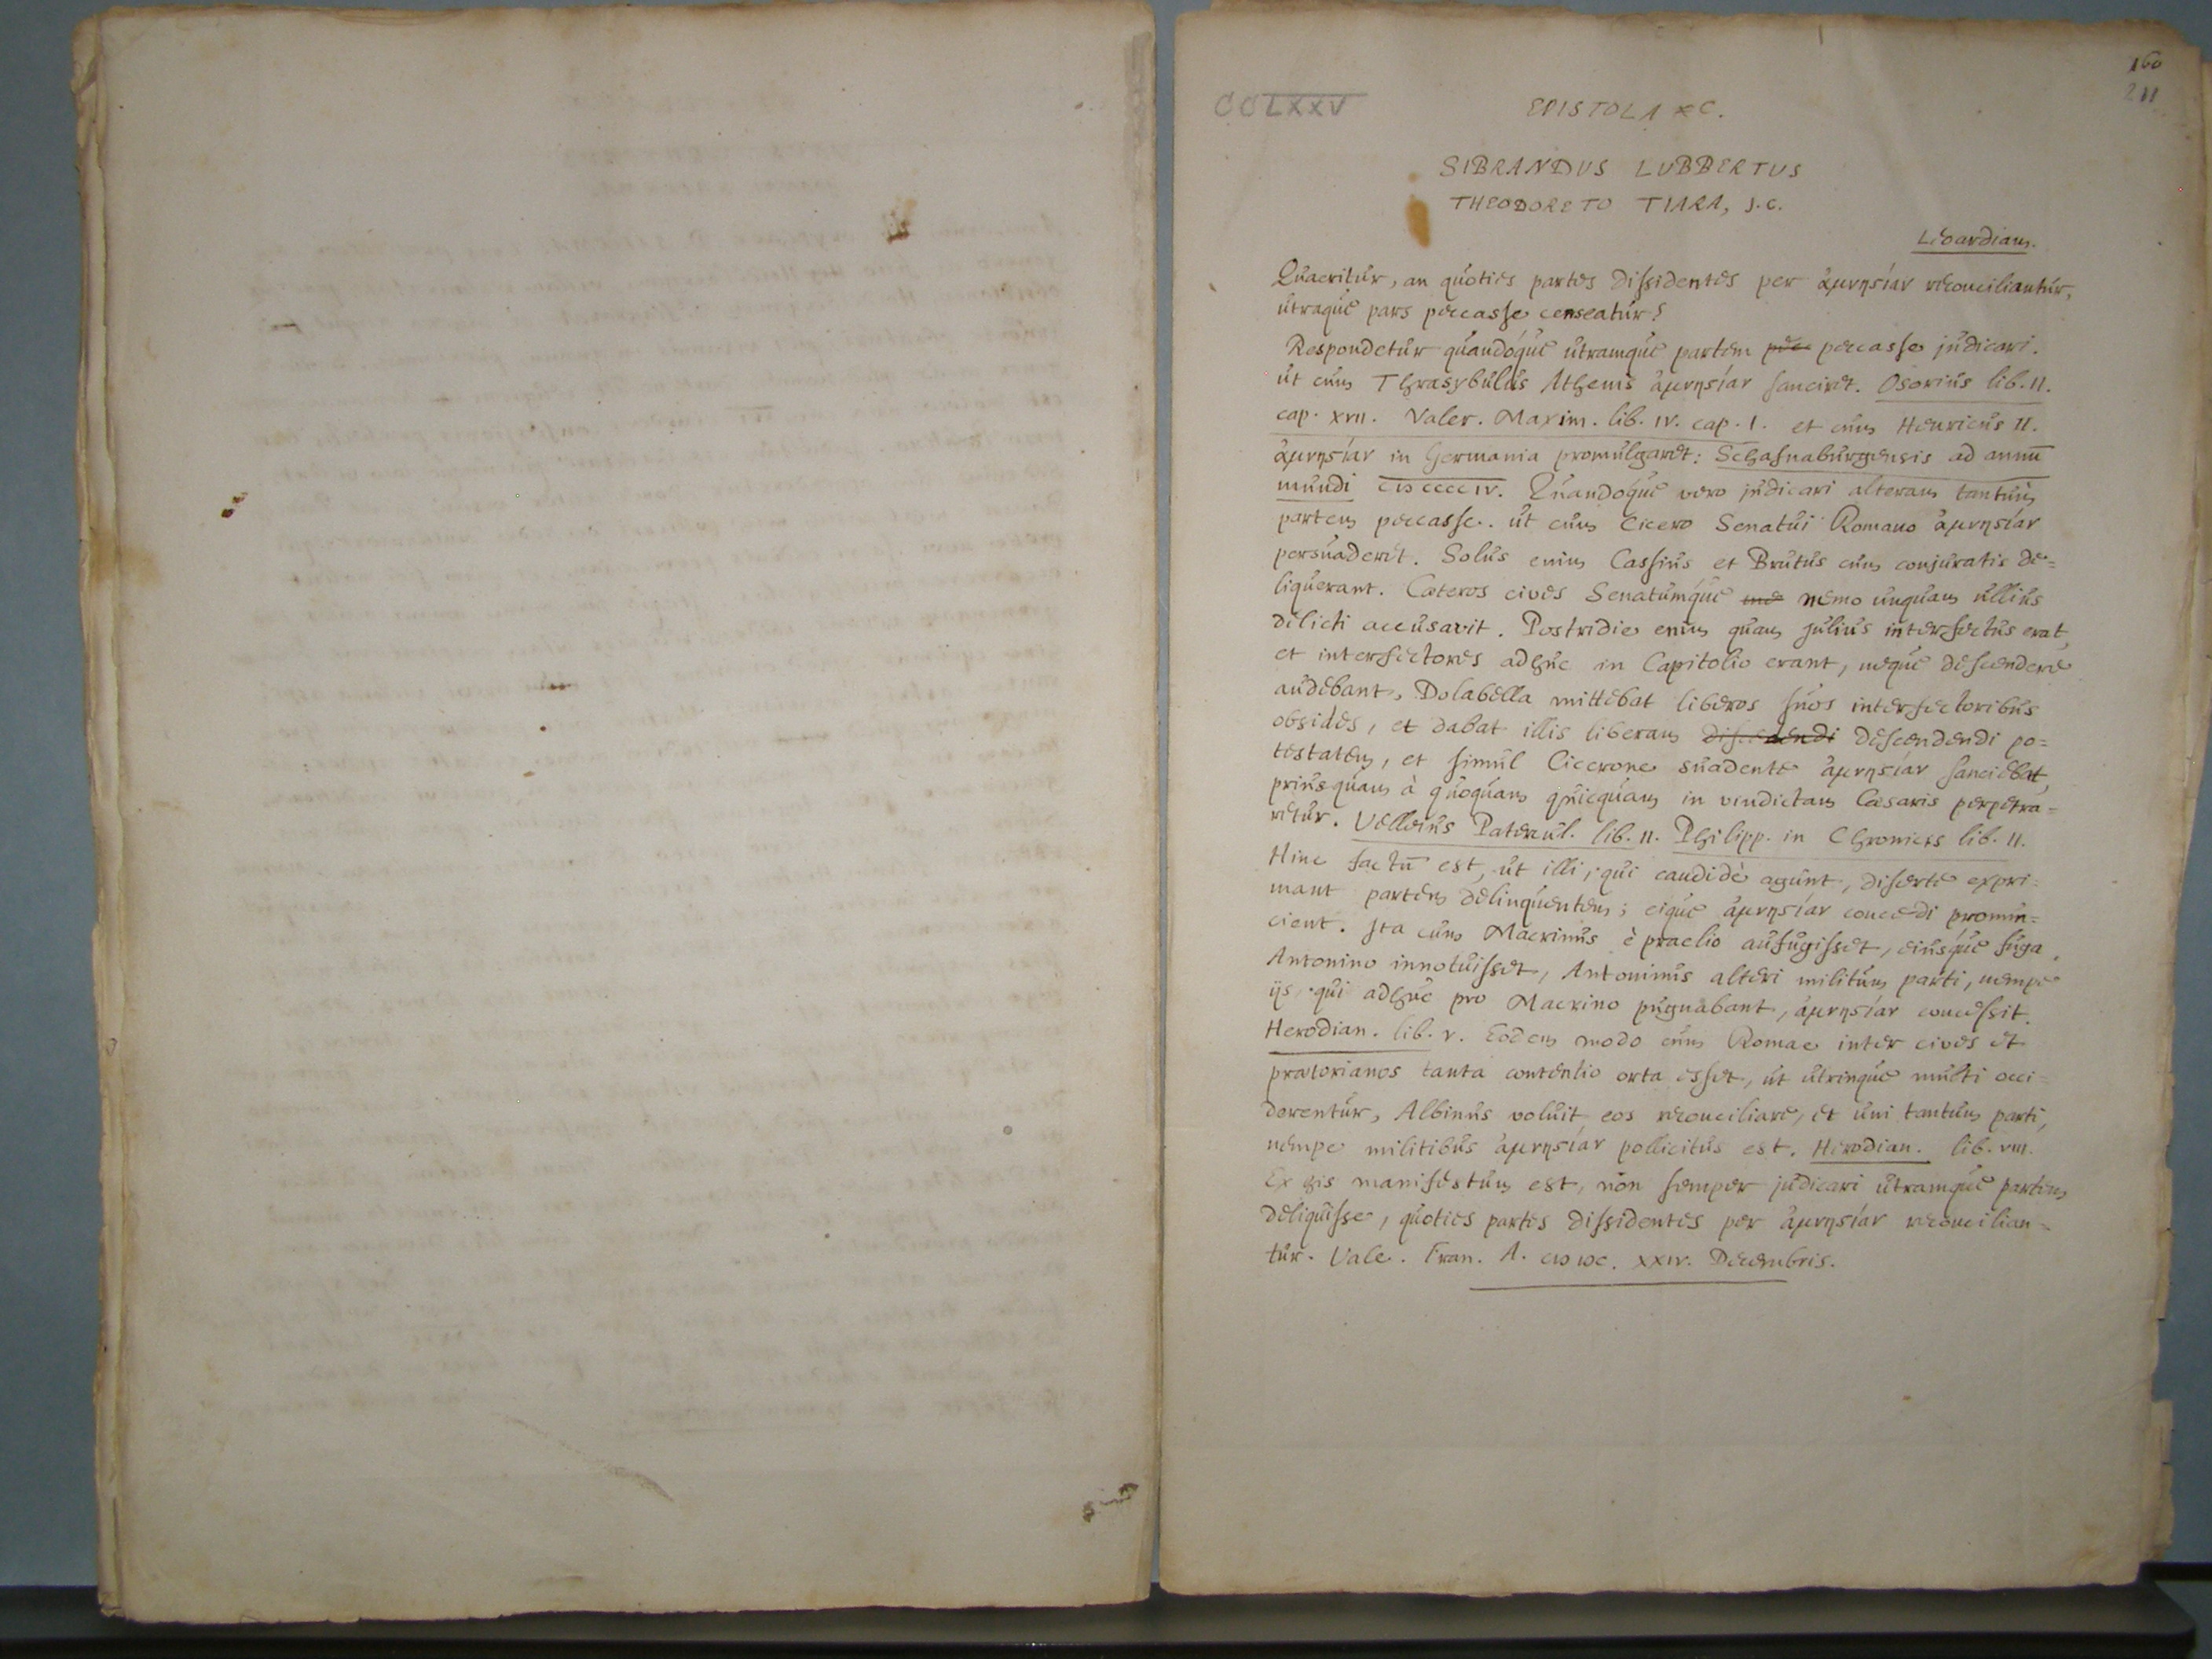 160
211
CCLXXV
EPISTOLA XC.
SIBRANDUS LUBBERTUS
THEODORETO TIARA, J.C.
Leoardiam.
Quaeritur, an quoties partes dissidentes per ἀμνηςίαν reconciliantur,
utraque pars peccasse censeatur?
Respondetur quandóque utramque partem pec peccasse judicari.
ut cum Thrasybulus Athenis ἀμνηςίαν sanciret. Osorius lib. II.
cap. XVII. Valer. Maxim. lib. IV. cap. I. et cum Henricus II.
ἀμνηςίαν in Germania promulgaret: Schafnaburgensis ad annū
mundi CIↃ CCCC IV. Quandóque vero judicari alteram tantum
partem peccasse. ut cum Cicero Senatui Romano ἀμνηςίαν
persuaderet. Solus enim Cassius et Brutus cum conjuratis de=
liquerant. Cæteros cives Senatúmque me nemo unquam ullius
delicti accusavit. Postridie enim quam Julius interfectus erat,
et interfectores adhuc in Capitolio erant, neque descendere
audebant, Dolabella mittebat liberos suos interfectoribus
obsides, et dabat illis liberam discedendi descendendi po=
testatem, et simul Cicerone suadente ἀμνηςίαν sanciebat,
priusquam à quoquam quicquam in vindictam Cæsaris perpetra=
retur. Velleius Patercul. lib. II. Philipp. in Chronicis lib. II.
Hinc factū est, ut illi, qui candidè agunt, disertè expri=
mant partem delinquentem; eique ἀμνηςίαν concedi pronun=
cient. Ita cum Macrinus è praelio aufugisset, eiusque fuga
Antonino innotuisset, Antoninus alteri militum parti, nempe
ijs, qui adhuc pro Macrino pugnabant, ἀμνηςίαν concessit.
Herodian. lib. V. Eodem modo cum Romae inter cives et
prætorianos tanta contentio orta esset, ut utrinque multi occi=
derentur, Albinus voluit eos reconciliare, et uni tantum parti,
nempe militibus ἀμνηςίαν pollicitus est. Herodian. lib. VIII.
Ex his manifestum est, non semper judicari utramque partem
deliquisse, quoties partes dissidentes per ἀμνηςίαν reconcilian=
tur. Vale. Fran. A. CIↃ IↃC. XXIV. Decembris.